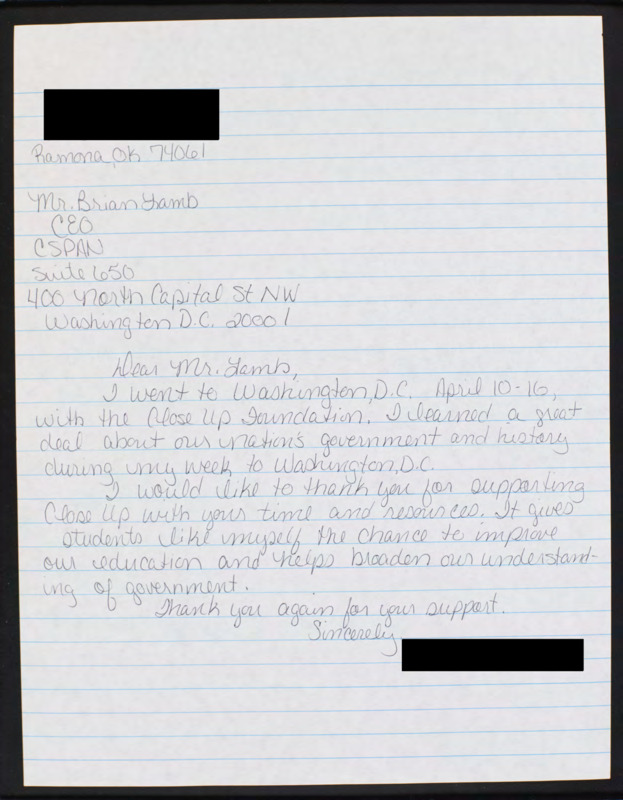 Ramona, OK 74061
Mr. Brian Lamb
CEO
CSPAN
Suite 650
400 North Capital St NW
Washington D.C. 20001
Dear Mr. Lamb,
I went to Washington, D.C. April 10-16,
with the Close Up Foundation. I learned a great
deal about our nation's government and history
during my week to Washington, D.C.
I would like to thank you for supporting
Close Up with your time and resources. It gives
students like myself the chance to improve
our education and helps broaden our understand-
ing of government.
Thank you again for your support.
Sincerely